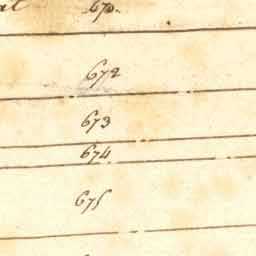 al 670.
672
673
674
675